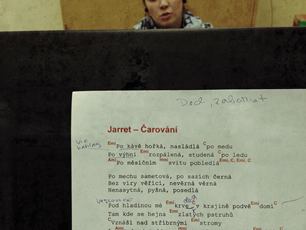 Jarret – Čarování
Emi Po kávě hořká, nasládlá C po medu
Emi Po výhni Emi rozpálená, studená C po ledu
Ami Po měsíčním Hmi svitu pobledlá Emi, C, Emi, C
Po mechu sametová, po sazích černá
Bez víry věřící, nevěrná věrná
Nenasytná, pyšná, posedlá
Emi Pod hladinou mé Emi krve v krajině podvědomí C
Tam kde se hejna Emi zlatých patruhů
C Vznáší nad stříbrnými Emi stromy